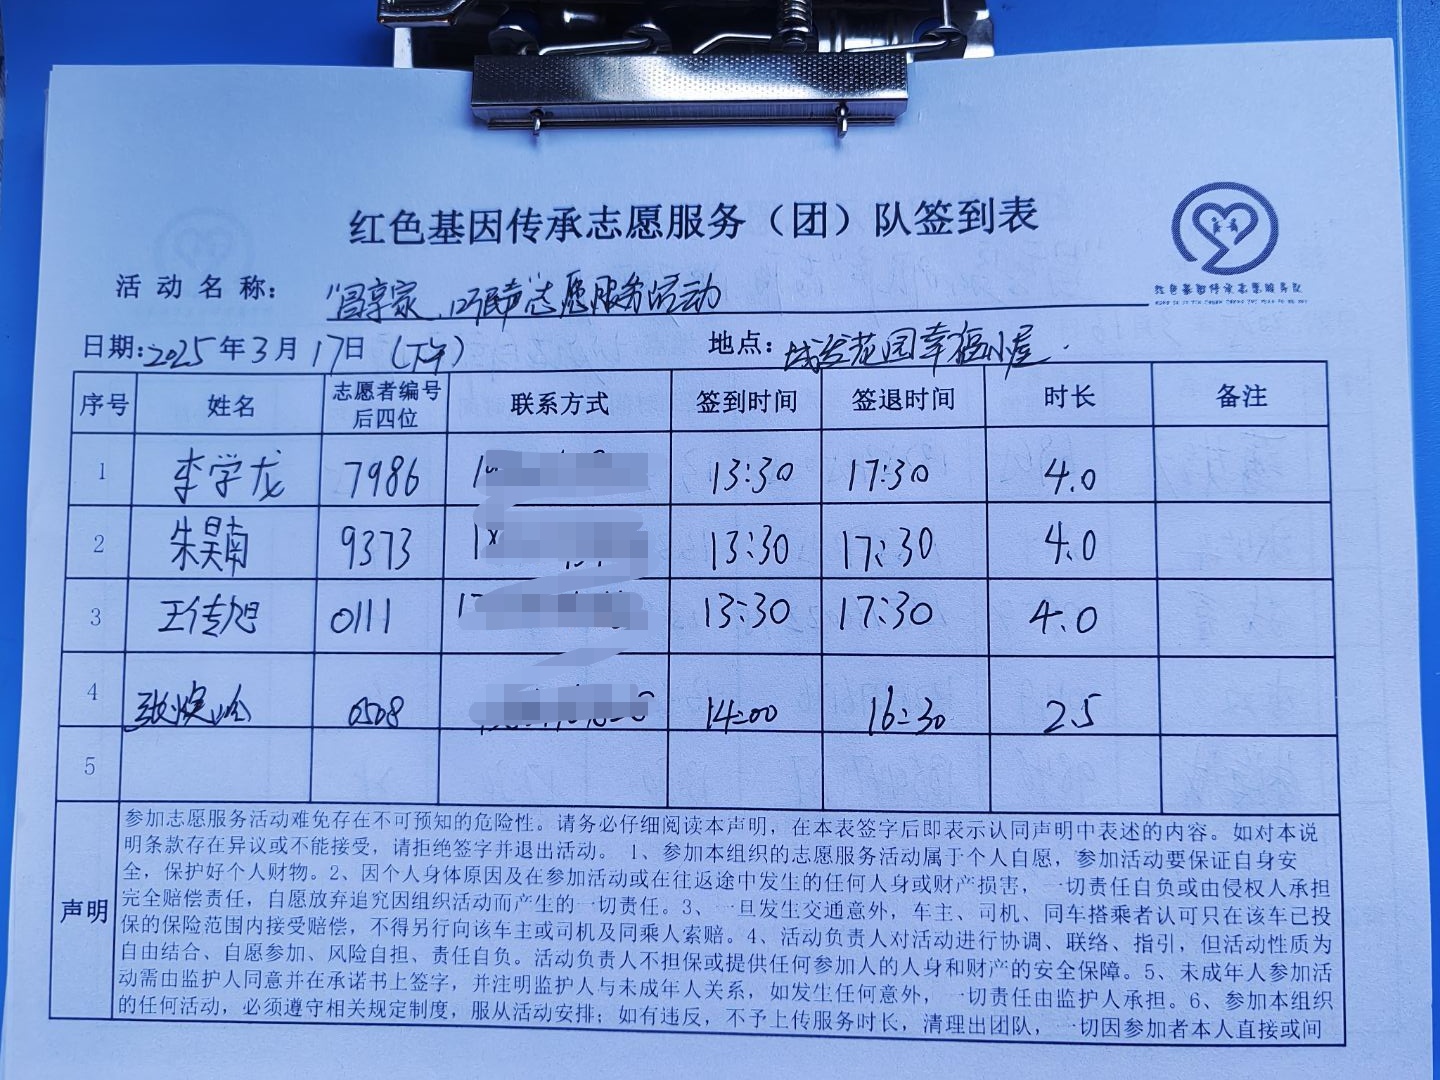 红色基因传承志愿服务（团）队签到表
红色基因传承志愿服务队
活动名称：
志愿服务活动
日期：2025年3月17日（下午） 地点：花园幸福小屋
序号 姓名 志愿者编号后四位 联系方式 签到时间 签退时间 时长 备注
1 李学龙 7986 13:30 17:30 4.0
2 朱昊南 9373 13:30 17:30 4.0
3 王传旭 0111 13:30 17:30 4.0
4 0508 14:00 16:30 2.5
5
声明
参加志愿服务活动难免存在不可预知的危险性。请务必仔细阅读本声明，在本表签字后即表示认同声明中表述的内容。如对本说
明条款存在异议或不能接受，请拒绝签字并退出活动。 1、参加本组织的志愿服务活动属于个人自愿，参加活动要保证自身安
全，保护好个人财物。2、因个人身体原因及在参加活动或在往返途中发生的任何人身或财产损害，一切责任自负或由侵权人承担
完全赔偿责任，自愿放弃追究因组织活动而产生的一切责任。3、一旦发生交通意外，车主、司机、同车搭乘者认可只在该车已投
保的保险范围内接受赔偿，不得另行向该车主或司机及同乘人索赔。4、活动负责人对活动进行协调、联络、指引，但活动性质为
自由结合、自愿参加、风险自担、责任自负。活动负责人不担保或提供任何参加人的人身和财产的安全保障。5、未成年人参加活
动需由监护人同意并在承诺书上签字，并注明监护人与未成年人关系，如发生任何意外，一切责任由监护人承担。6、参加本组织
的任何活动，必须遵守相关规定制度，服从活动安排；如有违反，不予上传服务时长，清理出团队，一切因参加者本人直接或间